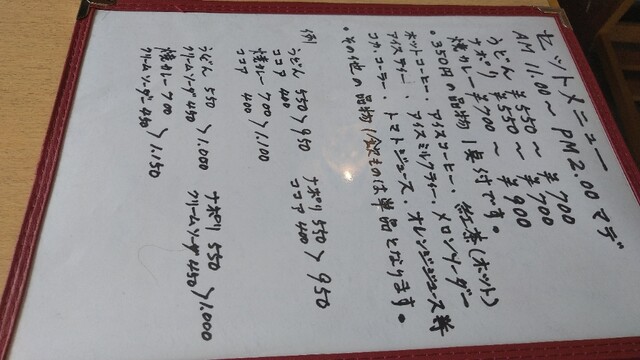 セットメニュー
AM 11.00 ～ PM 2.00 マデ
うどん ¥550 ～ ¥700
ナポリ ¥550 ～ ¥700
焼カレー ¥700 ～ ¥900
・350円の品物1点付です。
ホットコーヒー、アイスコーヒー、紅茶(ホット)
アイスティー、アイスミルクティー、メロンソーダー
コカコーラー、トマトジュース、オレンジジュース等
・その他の品物 飲ものは単品となります。
(例)
うどん 550 > 950
ココア 400
ナポリ 550 > 950
ココア 400
焼カレー 700 > 1,100
ココア 400
うどん 550 > 1,000
クリームソーダー 450
ナポリ 550 > 1,000
クリームソーダ 450
焼カレー 700 > 1,150
クリームソーダー 450